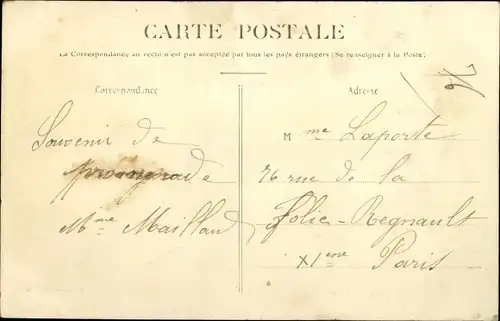 CARTE POSTALE
La Correspondance au recto n'est pas acceptée par tous les pays étrangers (Se renseigner à la Poste)
Correspondance
Adresse
Souvenir de
promenade
Mme Maillaud
Mme Laporte
76 rue de la
Folie-Regnault
XIeme Paris